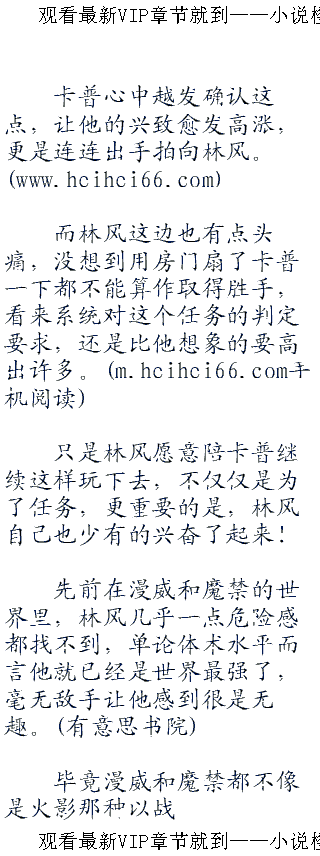 观看最新VIP章节就到——小说楼
卡普心中越发确认这
点，让他的兴致愈发高涨，
更是连连出手拍向林风。
(www.hcihci66.com)
而林风这边也有点头
痛，没想到用房门扇了卡普
一下都不能算作取得胜手，
看来系统对这个任务的判定
要求，还是比他想象的要高
出许多。(m.hcihci66.com手
机阅读)
只是林风愿意陪卡普继
续这样玩下去，不仅仅是为
了任务，更重要的是，林风
自己也少有的兴奋了起来！
先前在漫威和魔禁的世
界里，林风几乎一点危险感
都找不到，单论体术水平而
言他就已经是世界最强了，
毫无敌手让他感到很是无
趣。(有意思书院)
毕竟漫威和魔禁都不像
是火影那种以战
观看最新VIP章节就到——小说